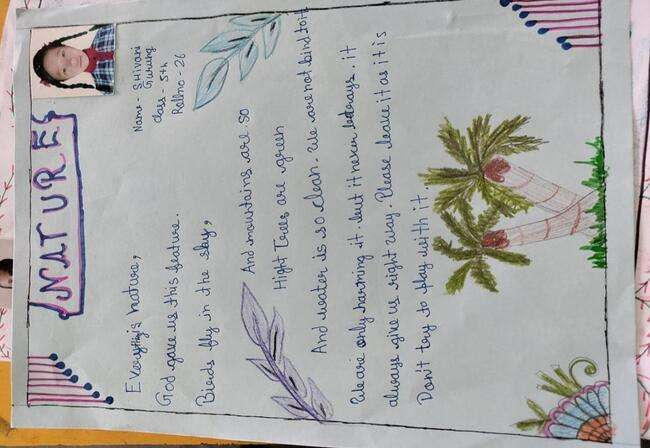 NATURES
Name - SHIVANI
Gurung
class - 5th
Rollno - 26
Everything's nature,
God gave us this feature.
Birds fly in the sky,
And mountains are so
Hight Trees are green
And water is so clean. We are not kind to it
We are only harming it. but it never betrays. it
always give us right way. Please leave it as it is
Don't try to play with it.